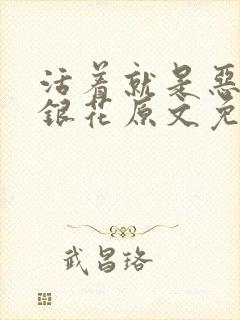 活着就是恶
银花原文免
武昌珞